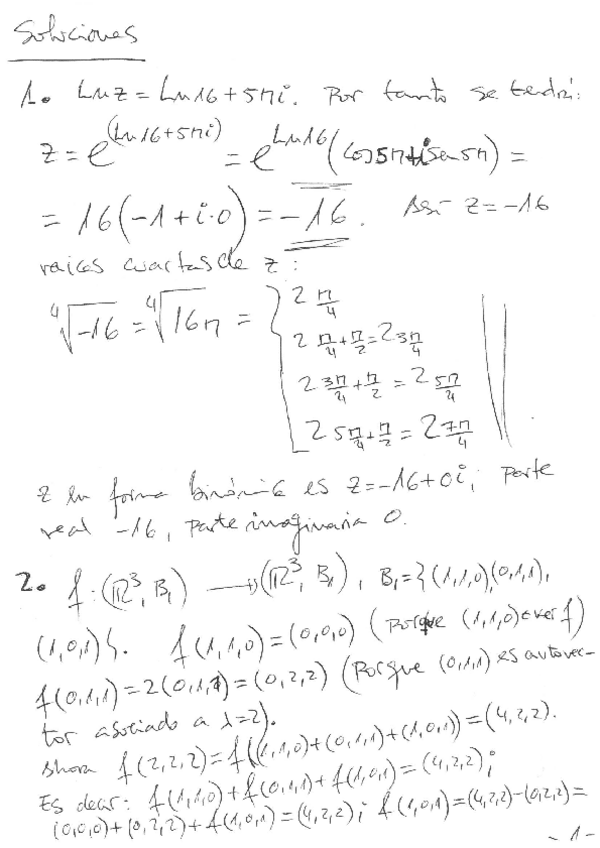 Soluciones
1. Ln z = Ln 16 + 5πi. Por tanto se tendrá:
z = e^(Ln 16 + 5πi) = e^Ln 16 (cos 5π + i sen 5π) =
= 16(-1 + i·0) = -16. Así z = -16
raíces cuartas de z:
⁴√-16 = ⁴√16_π = {
2_π/4
2_π/4+π/2 = 2_3π/4
2_3π/4+π/2 = 2_5π/4
2_5π/4+π/2 = 2_7π/4
z en forma binómica es z = -16 + 0i; parte
real -16, parte imaginaria 0.
2. f: (ℝ³, B₁) → (ℝ³, B₁), B₁ = {(1,1,0),(0,1,1),
(1,0,1)}. f(1,1,0) = (0,0,0) (porque (1,1,0) ∈ ker f)
f(0,1,1) = 2(0,1,1) = (0,2,2) (porque (0,1,1) es autovec-
tor asociado a λ=2).
Ahora f(2,2,2) = f((1,1,0)+(0,1,1)+(1,0,1)) = (4,2,2).
Es decir: f(1,1,0)+f(0,1,1)+f(1,0,1) = (4,2,2);
(0,0,0)+(0,2,2)+f(1,0,1) = (4,2,2); f(1,0,1) = (4,2,2)-(0,2,2) =
-1-